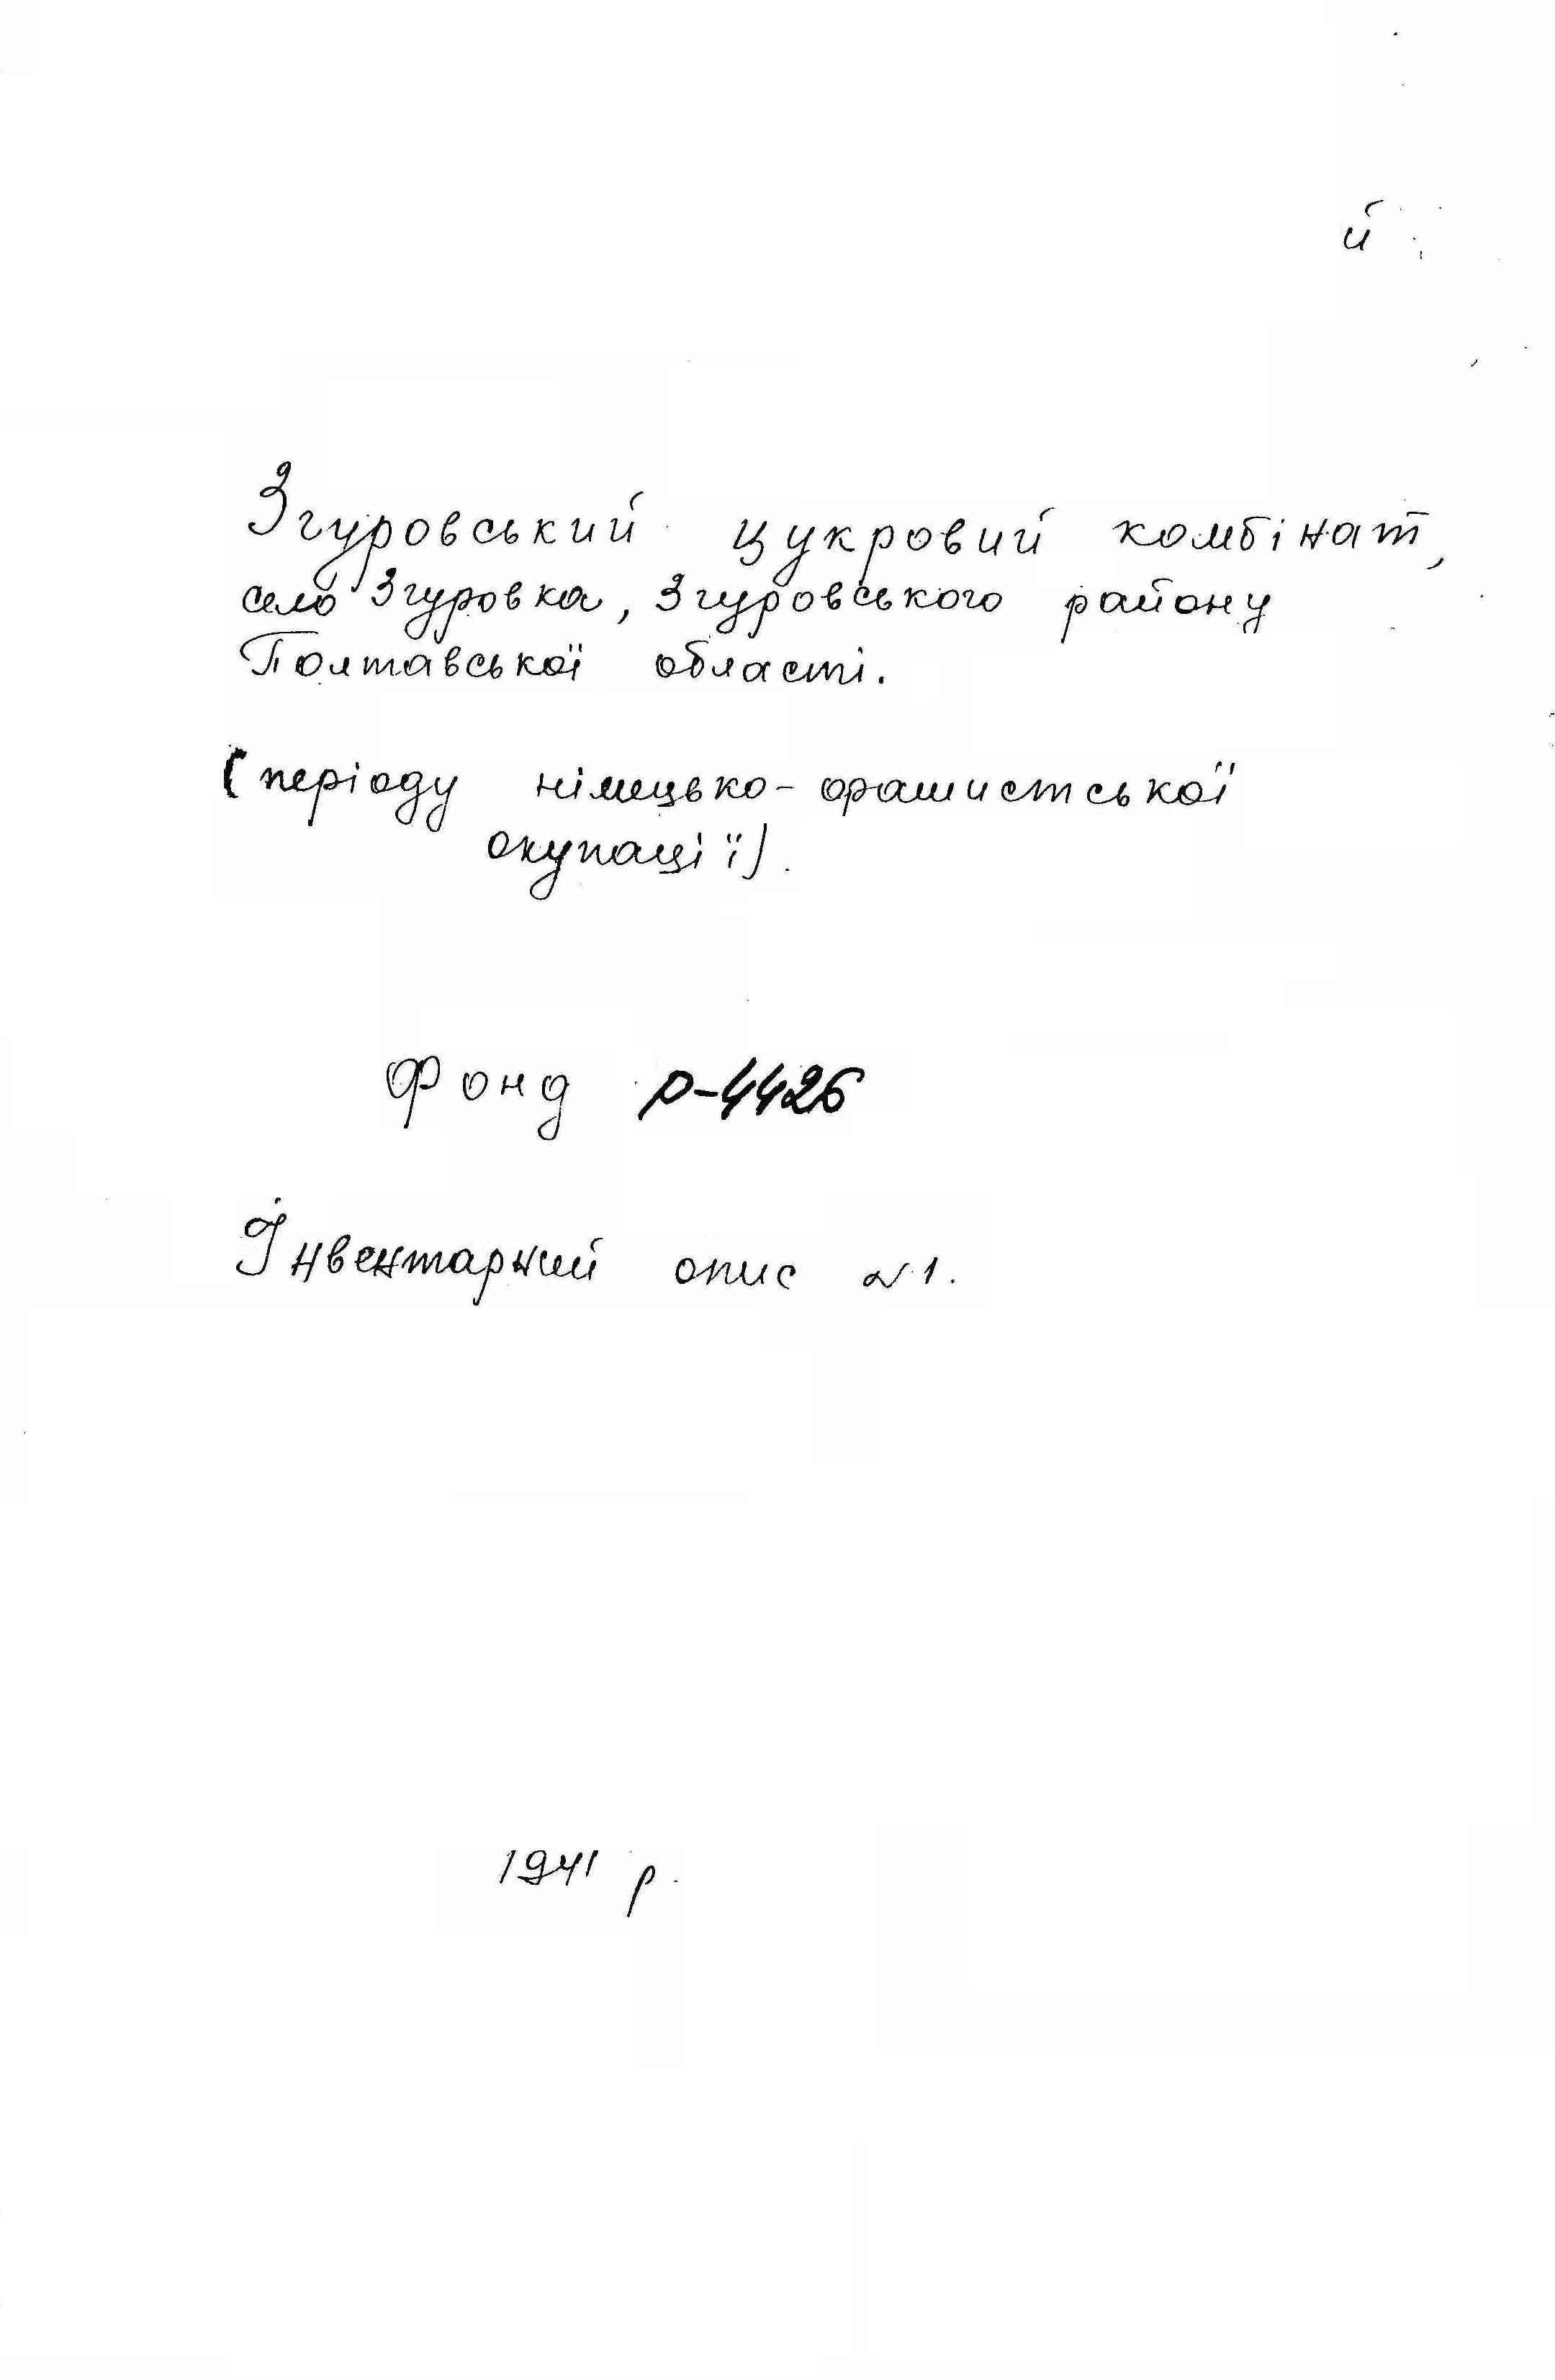 й
Згуровський цукровий комбінат,
село Згуровка, Згуровського району
Полтавської області.
(періоду німецько-фашистської
окупації).
Фонд Р-4426
Інвентарний опис №1.
1941 р.